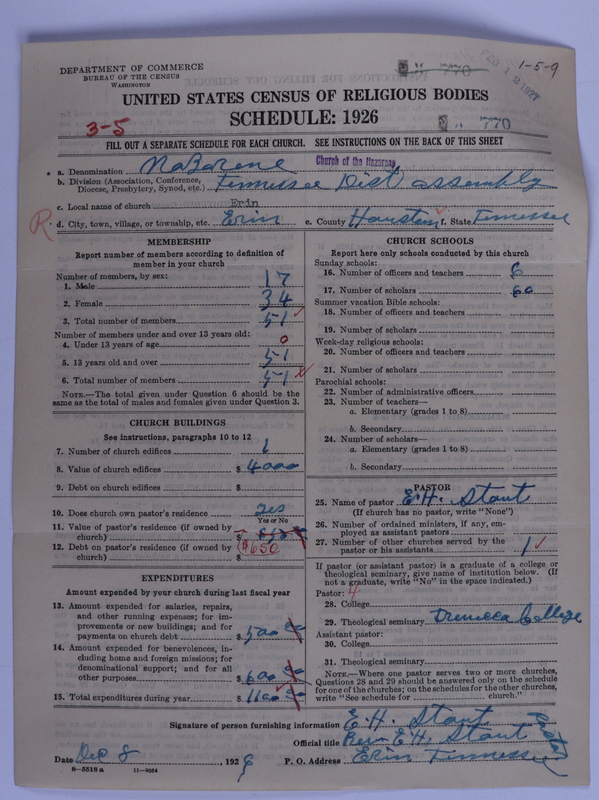 DEPARTMENT OF COMMERCE
BUREAU OF THE CENSUS
WASHINGTON
770
FEB 12 1927
1-5-9
UNITED STATES CENSUS OF RELIGIOUS BODIES
SCHEDULE: 1926
3-5
770
FILL OUT A SEPARATE SCHEDULE FOR EACH CHURCH. SEE INSTRUCTIONS ON THE BACK OF THIS SHEET
a. Denomination Nazarene Church of the Nazarene
b. Division (Association, Conference, Diocese, Presbytery, Synod, etc.) Tennessee Dist assembly
c. Local name of church Erin
R d. City, town, village, or township, etc. Erin e. County Houston f. State Tennessee
MEMBERSHIP
Report number of members according to definition of
member in your church
Number of members, by sex:
1. Male 17
2. Female 34
3. Total number of members 51
Number of members under and over 13 years old:
4. Under 13 years of age 0
5. 13 years old and over 51
6. Total number of members 51
NOTE.—The total given under Question 6 should be the
same as the total of males and females given under Question 3.
CHURCH BUILDINGS
See instructions, paragraphs 10 to 12
7. Number of church edifices 1
8. Value of church edifices $ 4000
9. Debt on church edifices $
10. Does church own pastor's residence yes
Yes or No
11. Value of pastor's residence (if owned by
church) $
12. Debt on pastor's residence (if owned by
church) $ $650
EXPENDITURES
Amount expended by your church during last fiscal year
13. Amount expended for salaries, repairs,
and other running expenses; for im-
provements or new buildings; and for
payments on church debt $ 500 00
14. Amount expended for benevolences, in-
cluding home and foreign missions; for
denominational support; and for all
other purposes $ 600 00
15. Total expenditures during year $ 1100 00
CHURCH SCHOOLS
Report here only schools conducted by this church
Sunday schools:
16. Number of officers and teachers 6
17. Number of scholars 60
Summer vacation Bible schools:
18. Number of officers and teachers
19. Number of scholars
Week-day religious schools:
20. Number of officers and teachers
21. Number of scholars
Parochial schools:
22. Number of administrative officers
23. Number of teachers—
a. Elementary (grades 1 to 8)
b. Secondary
24. Number of scholars—
a. Elementary (grades 1 to 8)
b. Secondary
PASTOR
25. Name of pastor E.H. Stout
(If church has no pastor, write "None")
26. Number of ordained ministers, if any, em-
ployed as assistant pastors
27. Number of other churches served by the
pastor or his assistants 1
If pastor (or assistant pastor) is a graduate of a college or
theological seminary, give name of institution below. (If
not a graduate, write "No" in the space indicated.)
Pastor: 4
28. College
29. Theological seminary Trevecca College
Assistant pastor:
30. College
31. Theological seminary
NOTE.—Where one pastor serves two or more churches,
Questions 28 and 29 should be answered only on the schedule
for one of the churches; on the schedules for the other churches,
write "See schedule for church."
Signature of person furnishing information E.H. Stout
Official title Rev. E.H. Stout Pastor
Date Dec 8, 1926 P. O. Address Erin Tennessee
8-5519a 11-9064